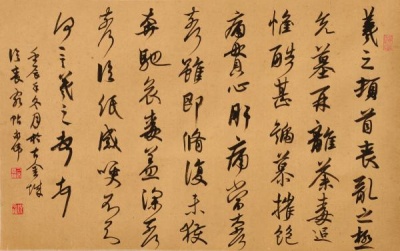 羲之頓首喪亂之極
先墓再離荼毒追
惟酷甚號慕摧絕
痛貫心肝痛當奈何
奈何雖即脩復未獲
奔馳哀毒益深奈何
奈何臨紙感哽不知
何言羲之頓首頓首
年冬月於古金陵
臨喪亂帖